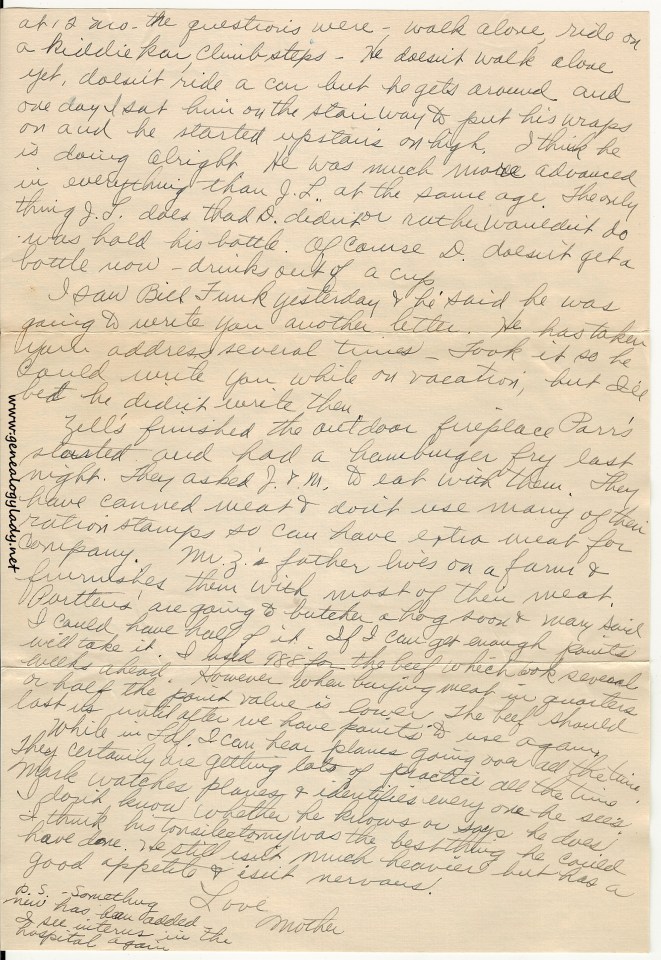 at 12 mo. the questions were - walk alone, ride on
a kiddie kar, climb steps - He doesn't walk alone
yet, doesn't ride a car but he gets around and
one day I sat him on the stairway to put his wraps
on and he started upstairs on high. I think he
is doing alright. He was much more advanced
in everything than J.L. at the same age. The only
thing J.L. does that D. didn't or rather wouldn't do
was hold his bottle. Of course D. doesn't get a
bottle now - drinks out of a cup.
I saw Bill Funk yesterday & he said he was
going to write you another letter. He has taken
your address several times - Took it so he
could write you while on vacation, but I'll
bet he didn't write then.
Zell's finished the outdoor fireplace Parr's
started and had a hamburger fry last
night. They asked J. & M. to eat with them. They
have canned meat & don't use many of their
ration stamps so can have extra meat for
company. Mr. Z.'s father lives on a farm &
furnishes them with most of their meat.
Portters' are going to butcher a hog soon & Mary said
I could have half of it. If I can get enough points
will take it. I used 988 for the beef which took several
weeks ahead. However when buying meat in quarters
or half the point value is lower. The beef should
last us until after we have points to use again.
While in Laf. I can hear planes going over all the time.
They certainly are getting lots of practice all the time.
Mark watches planes & identifies every one he sees.
I don't know whether he knows or says he does.
I think his tonsilectomy was the best thing he could
have done. He still isn't much heavier but has a
good appetite & isn't nervous.
Love
Mother
P.S. - Something
new has been added -
I see interns in the
hospital again
www.genealogylady.net